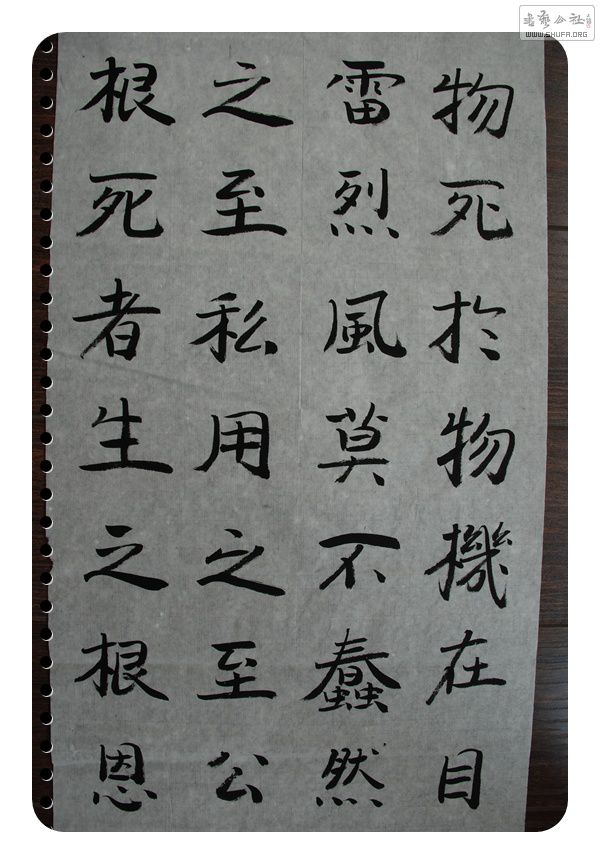 物死於物機在目
雷烈風莫不蠢然
之至私用之至公
根死者生之根恩
書藝公社
WWW.SHUFA.ORG